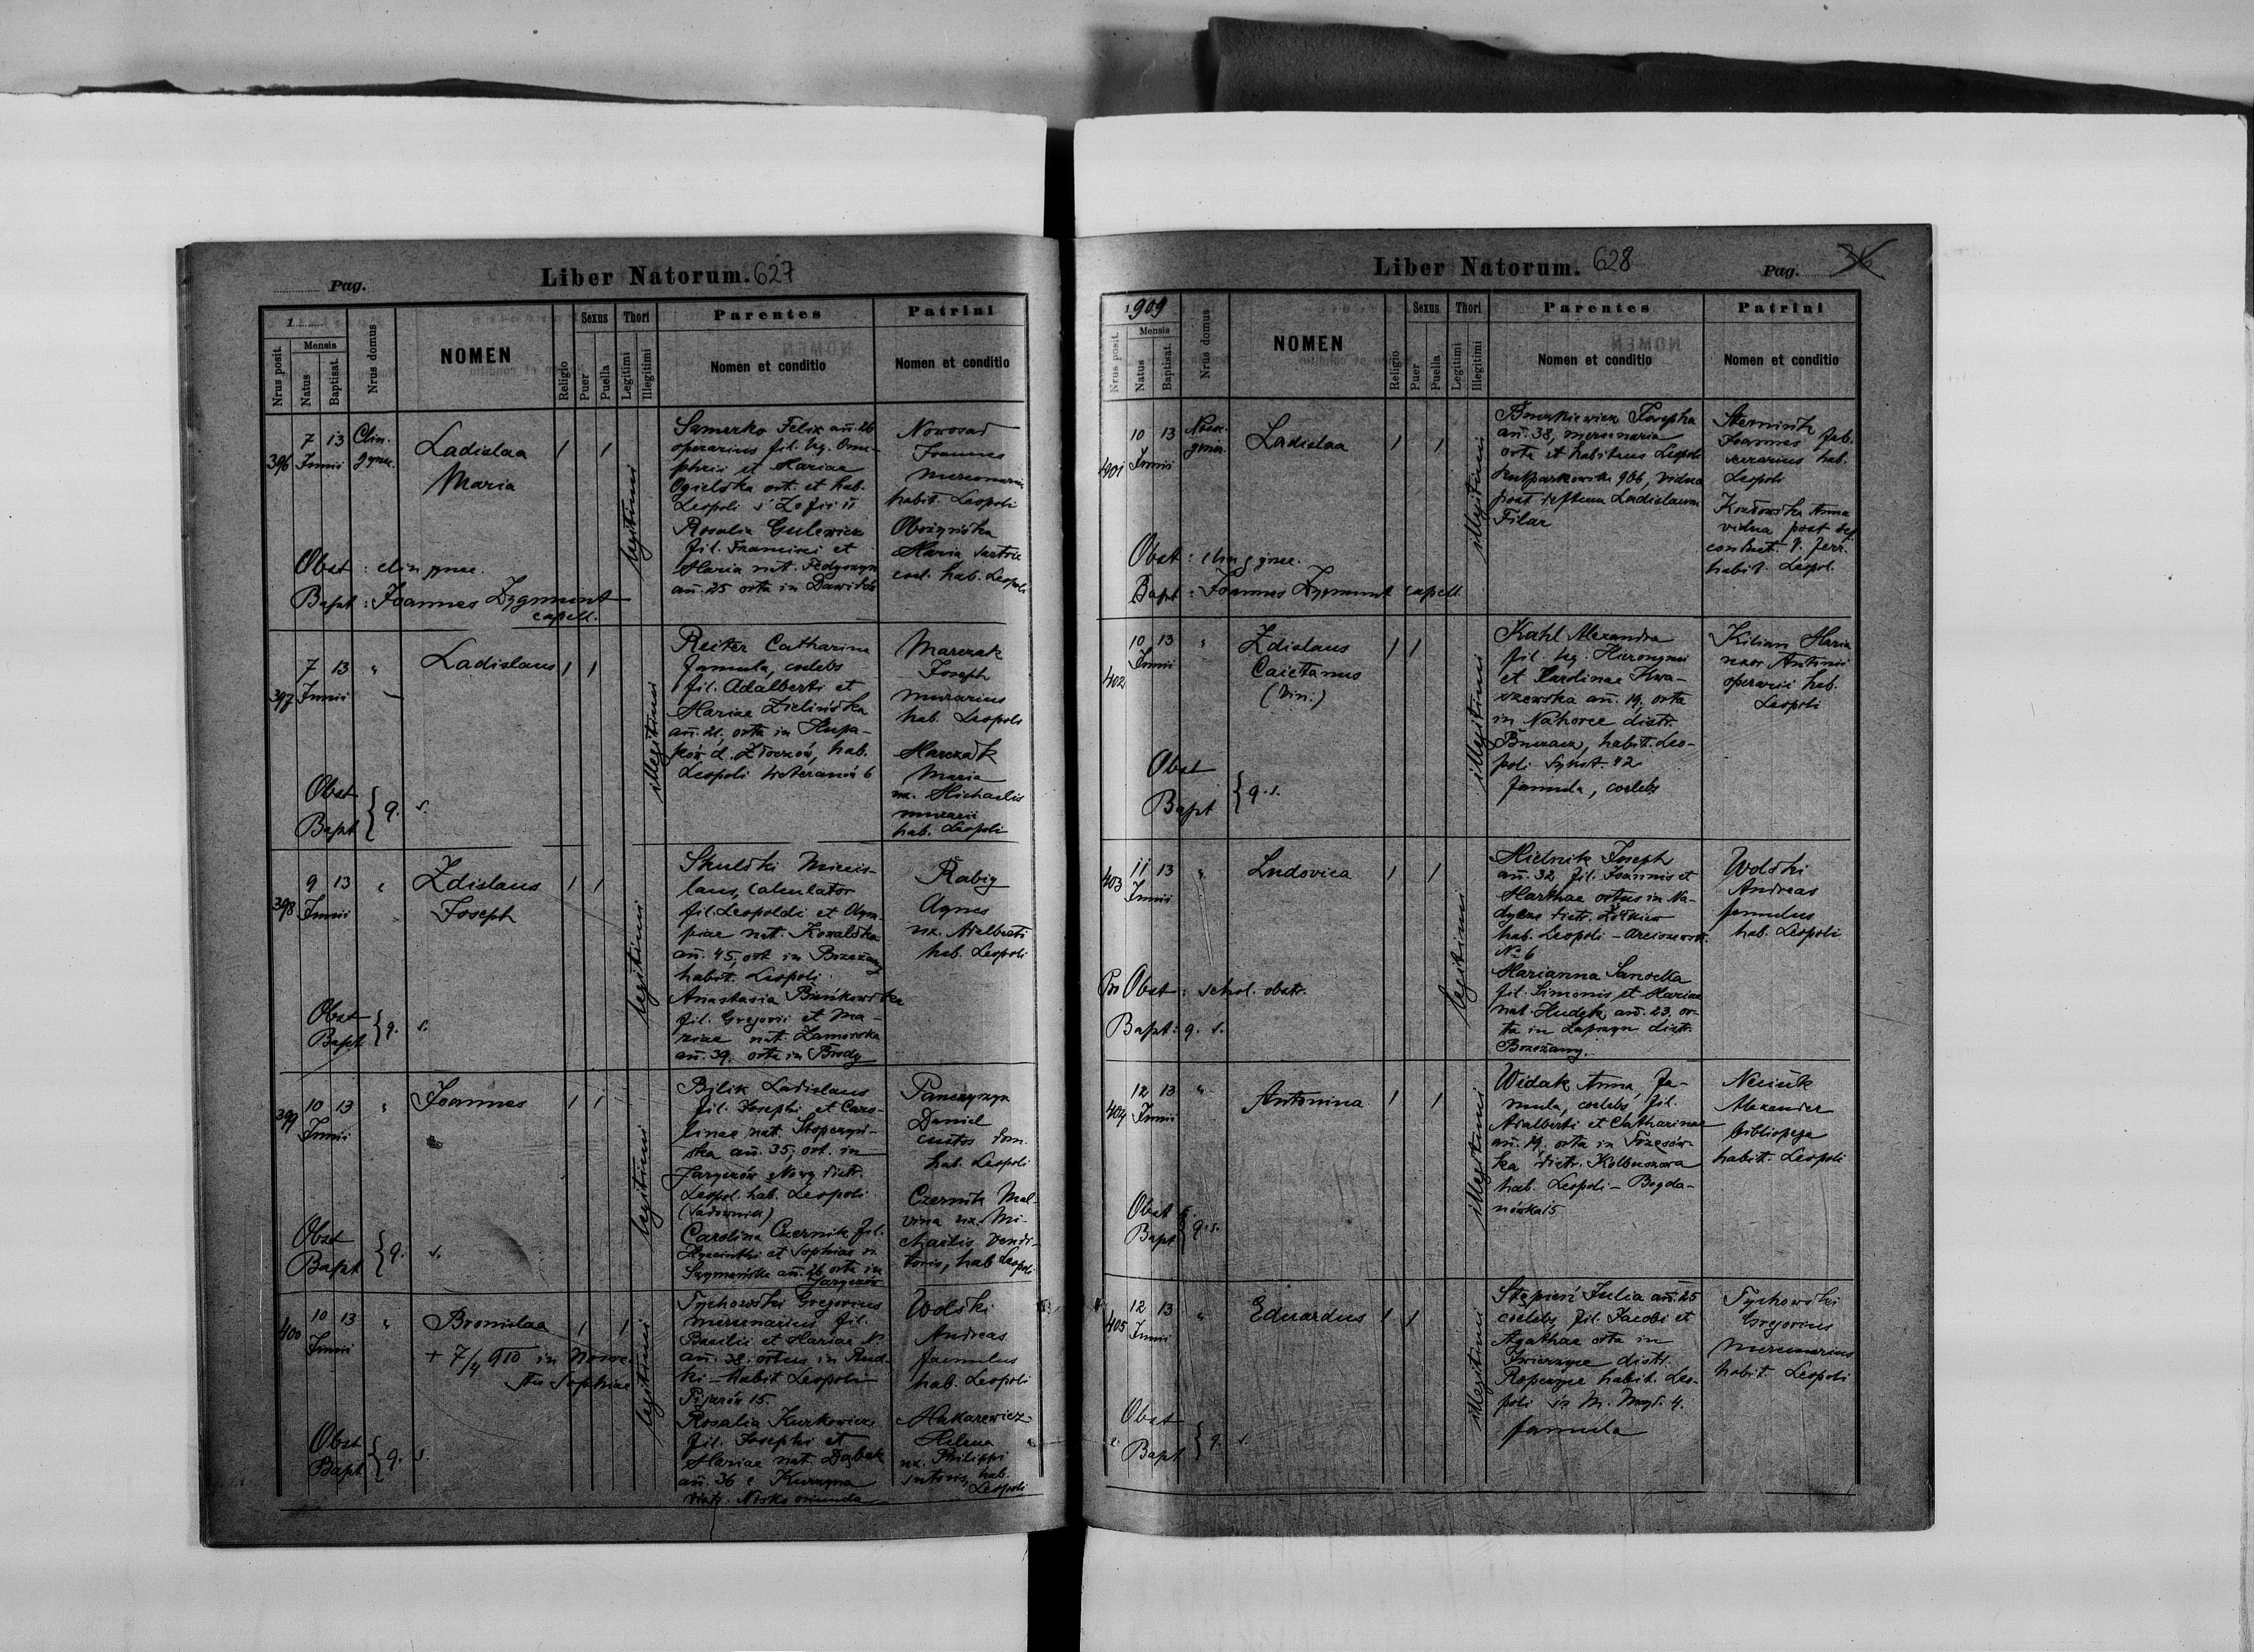 Pag.
Liber Natorum. 627
1
Nrus posit.
Mensis
Natus
Baptisat.
Nrus domus
NOMEN
Religio
Sexus
Puer
Puella
Thori
Legitimi
Illegitimi
Parentes
Nomen et conditio
Patrini
Nomen et conditio
396
7 13 Clin.
Junii gynec.
Ladislaa
Maria
1 1
legitimi
Samerko Felix añ. 26
operarius fil. leg. Onu-
phrii et Mariae
Ogielska ort. et hab.
Leopoli s. Zofii 11
Rosalia Gulewicz
fil. Francisci et
Maria nat. Fedyszyn
añ. 25 orta in Dawidów
Nowosad
Joannes
mercenarius
habit. Leopoli
Maria sartrix
coel. hab. Leopoli
Obst : clin gynec.
Bapt : Joannes Zygmunt
capell.
397
7 13 "
Junii
Ladislaus 1 1
illegitimi
Reiter Catharina
famula, coelebs
fil. Adalberti et
Mariae Zielińska
añ. 21, orta in
d. Złoczów, hab.
Leopoli Weteranów 6
Marczak
Joseph
murarius
hab. Leopoli
Marczak
Maria
ux. Michaelis
murarii
hab. Leopoli
Obst
Bapt } q. s.
398
9 13 "
Junii
Zdislaus
Joseph
1 1
legitimi
Skulski Miecis-
laus, calculator
fil. Leopoldi et Olym-
piae nat. Kowalska
añ. 45, ort. in Brzeżany
habit. Leopoli.
Anastasia Bieńkowska
fil. Gregorii et Ma-
riae nat. Zamorska
añ. 39. orta in Brody
Rabij
Agnes
ux. Adalberti
hab. Leopoli
Obst
Bapt } q. s.
399
10 13 "
Junii
Joannes
1 1
legitimi
Bilik Ladislaus
fil. Josephi et Caro-
linae nat. Stopczyń-
ska añ. 35, ort. in
Jaryczów Nowy distr.
Leopol. hab. Leopoli
Carolina Czernik fil.
Hyacinthi et Sophiae n.
Szymańska añ. 26 orta in
Jaryczów
Panczyszyn
Daniel
custos dom.
hab. Leopoli
Czernik Mal-
vina ux. Mi-
chaelis vendi-
toris, hab. Leopoli
Obst
Bapt } q. s.
400
10 13 "
Junii
Bronislaa
1 1
+ 7/4 910 in
Sophiae
legitimi
Tychowski Gregorius
mercenarius fil.
Basilii et Mariae N.
añ. 38. ortus in Rud-
ki - habit Leopoli
Pijarów 15.
Rosalia Kurkowicz
fil. Josephi et
Mariae nat Dąbek
añ 36 e Kurzyna
distr. Nisko oriunda
Wolski
Andreas
famulus
hab. Leopoli
Makarewicz
Helena
ux. Philippi
sutoris, hab.
Leopoli
Obst
Bapt } q. s.
Liber Natorum. 628
Pag.
1909
Nrus posit.
Mensis
Natus
Baptisat.
Nrus domus
NOMEN
Religio
Sexus
Puer
Puella
Thori
Legitimi
Illegitimi
Parentes
Nomen et conditio
Patrini
Nomen et conditio
401
10 13
Junii
Ladislaa
1 1
illegitimi
Josepha
añ. 38, mercenaria
orta et habitans Leopoli
Kulparkowska 966, vidua
post defctum Ladislaum
Filar
Joannes fab.
hab.
Leopoli
Kozłowska Anna
vidua post def.
conduct. v. ferr.
habit. Leopol.
Obst : clin gynec.
Bapt : Joannes Zygmunt capell.
402
10 13 "
Junii
Zdislaus
Caietanus
1 1
illegitimi
Kahl Alexandra
fil. leg. Hieronymi
et Carolinae Kwa-
szewska añ. 19, orta
in Nahorce distr.
habit. Leo-
poli Sykst. 42
famula, coelebs
Kilian Maria
uxor Antonii
operarii hab.
Leopoli
Obst
Bapt } q. s.
403
11 13 "
Junii
Ludovica
1 1
legitimi
Mielnik Joseph
añ. 32 fil. Joannis et
Marthae ortus in Na-
dycze distr. Żółkiew
hab. Leopoli - Arciszewsk.
No 6
Marianna Sanocka
fil. Simonis et Mariae
nat. Hudyk añ. 23. or-
ta in Łapszyn distr.
Brzeżany.
Wolski
Andreas
famulus
hab. Leopoli
Obst : schol. obstr.
Bapt : q. s.
404
12 13 "
Junii
Antonina
1 1
illegitimi
Widak Anna, fa-
mula, coelebs, fil.
Adalberti et Catharinae
añ. 19. orta in Trzesów-
ka distr. Kolbuszowa
hab. Leopoli - Bogda-
nówka 15
Alexander
bibliopega
habit. Leopoli
Obst
Bapt } q. s.
405
12 13 "
Junii
Eduardus
1 1
illegitimi
Stępień Julia añ. 25
coelebs, fil. Jacobi et
Agathae orta in
Zwierzyce distr.
Ropczyce habit. Leo-
poli s. M. Magd. 4.
famula
Tychowski
Gregorius
mercenarius
habit. Leopoli
Obst
Bapt } q. s.